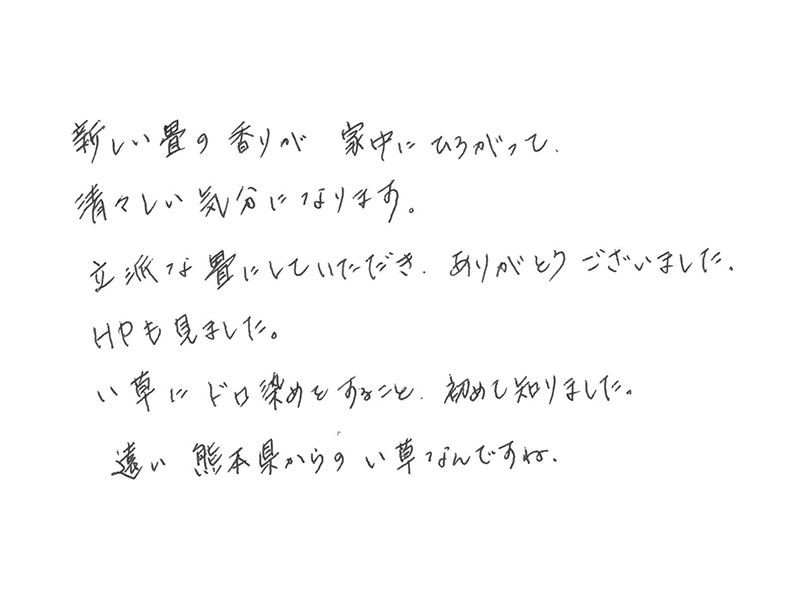 新しい畳の香りが 家中にひろがって、
清々しい気分になります。
立派な畳にしていただき、ありがとうございました。
HPも見ました。
い草にドロ染めをすること、初めて知りました。
遠い 熊本県からの い草なんですね。